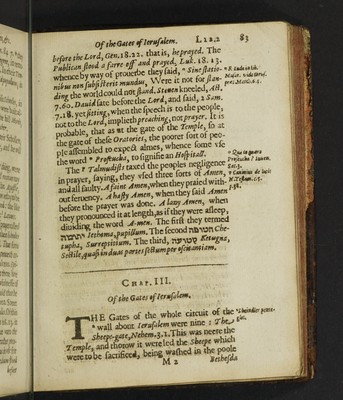 Of the Gates of Ierusalem. L 12.2 83
before the Lord, Gen. 18.22. that is, he prayed. The
Publican stood a farre off and prayed, Luk. 18.13.
whence by way of prouerbe they said, "Sine statio-
nibus non subsisteret mundus, Were it not for stan-
ding the world could not stand. Steven kneeled, Act.
7.60. David sate before the Lord, and said, 2 Sam.
7.18. yet sitting, when the speech is to the people,
not to the Lord, implieth preaching, not prayer. It is
probable, that as at the gate of the Temple, so at
the gate of these Oratories, the poorer sort of peo-
ple assembled to expect almes, whence some vse
the word Proseucha, to signifie an Hospitall.
The Talmudists taxed the peoples negligence
in prayer, saying, they vsed three sorts of Amen,
and all faulty. A faint Amen, when they praied with-
out feruency. A hasty Amen, when they said Amen
before the prayer was done. A lazy Amen, when
they pronounced it at length, as if they were asleep,
diuiding the word A-men. The first they termed
יתומה Iethoma, pupillum. The second חטופה Che-
tupha, Surreptitium. The third, קטועה Ketugna,
Sectile, quasi in duas partes sectum per oscitantiam.
CHAP. III.
Of the Gates of Ierusalem.
THE Gates of the whole circuit of the
wall about Ierusalem were nine: The
Sheepe-gate, Nehem. 3.1. This was neere the
Temple, and thorow it were led the Sheepe which
were to be sacrificed, being washed in the poole
M 2 Bethesda